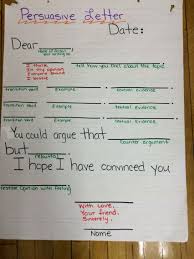 Persuasive Letter
Date:
Dear
I think
In my opinion
Everyone should
I believe
tell how you feel about the topic
transition word Example textual evidence
transition word Example textual evidence
transition word Example textual evidence
You could argue that
counter argument
but
rebuttal
I hope I have convinced you
restate opinion with feeling
With love,
Your friend,
Sincerely,
Name